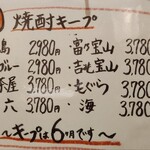 焼酎キープ
島 2980円 ・富乃宝山 3,780
ブルー 2,980円 ・吉も宝山 3,780
茶屋 3,780円 ・もぐら 3,780
六 3,780円 ・海 3,780
〜キープは6ヶ月です〜